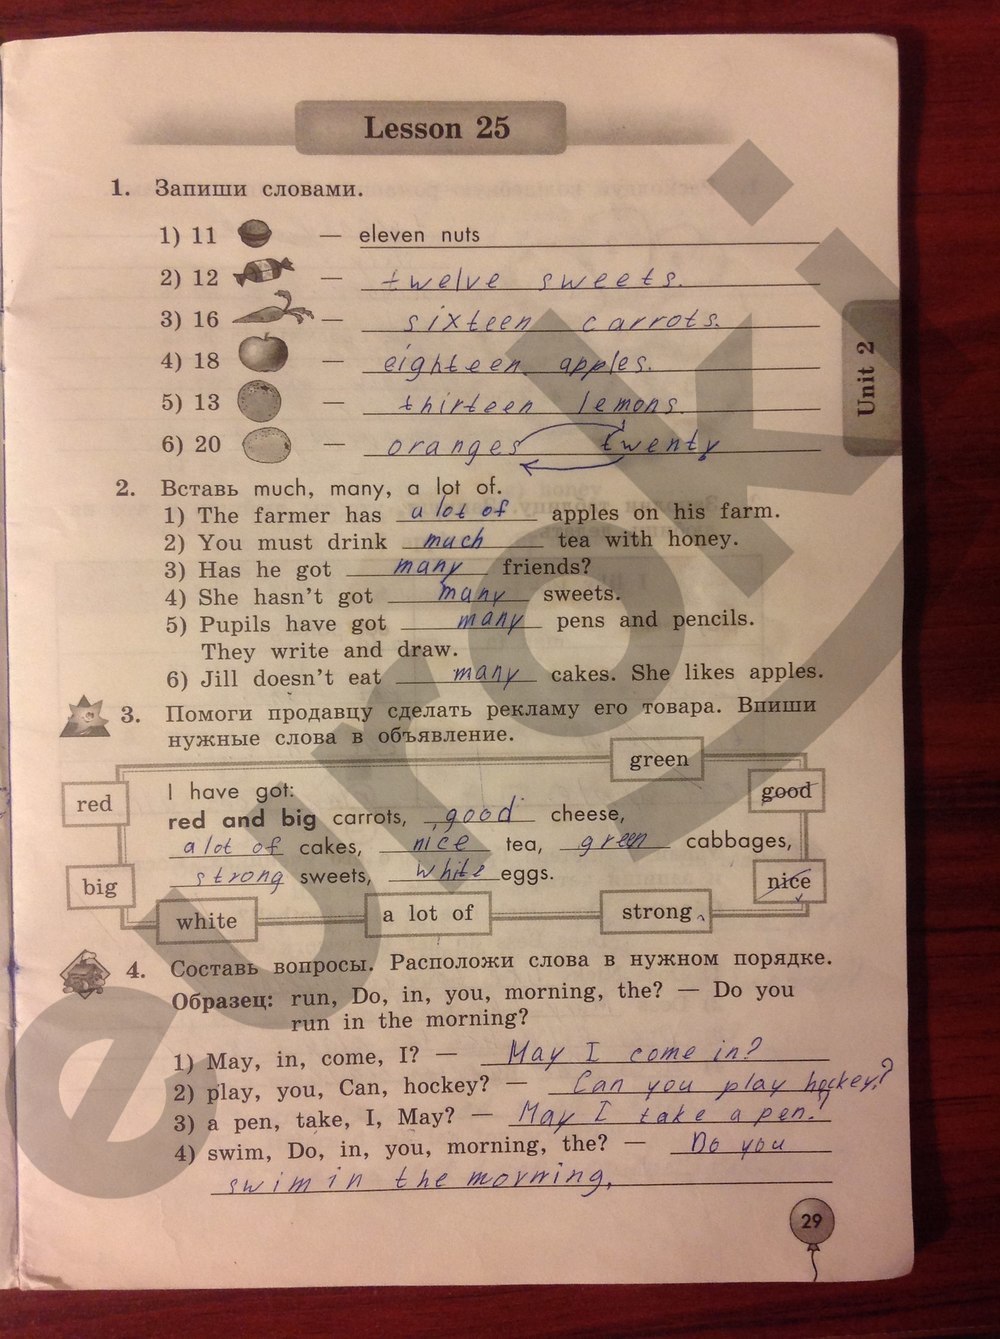 Lesson 25
1. Запиши словами.
1) 11 — eleven nuts
2) 12 — twelve sweets.
3) 16 — sixteen carrots.
4) 18 — eighteen apples.
5) 13 — thirteen lemons.
6) 20 — oranges twenty
Unit 2
2. Вставь much, many, a lot of.
1) The farmer has a lot of apples on his farm.
2) You must drink much tea with honey.
3) Has he got many friends?
4) She hasn't got many sweets.
5) Pupils have got many pens and pencils.
They write and draw.
6) Jill doesn't eat many cakes. She likes apples.
3. Помоги продавцу сделать рекламу его товара. Впиши
нужные слова в объявление.
green
red
good
I have got:
red and big carrots, good cheese,
a lot of cakes, nice tea, green cabbages,
strong sweets, white eggs.
big
nice
white
a lot of
strong
4. Составь вопросы. Расположи слова в нужном порядке.
Образец: run, Do, in, you, morning, the? — Do you
run in the morning?
1) May, in, come, I? — May I come in?
2) play, you, Can, hockey? — Can you play hockey?
3) a pen, take, I, May? — May I take a pen?
4) swim, Do, in, you, morning, the? — Do you
swim in the morning,
29
euroki